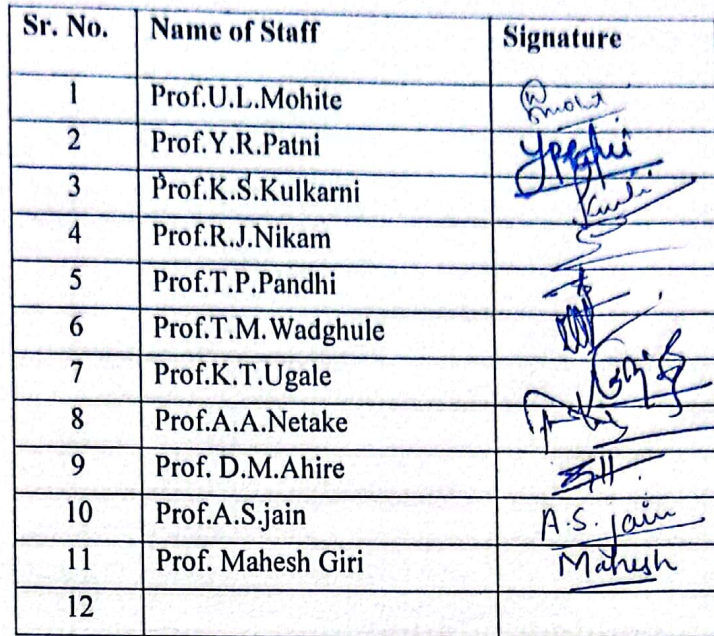 Sr. No. Name of Staff Signature
1 Prof.U.L.Mohite
2 Prof.Y.R.Patni
3 Prof.K.S.Kulkarni
4 Prof.R.J.Nikam
5 Prof.T.P.Pandhi
6 Prof.T.M.Wadghule
7 Prof.K.T.Ugale
8 Prof.A.A.Netake
9 Prof. D.M.Ahire
10 Prof.A.S.jain A.S. jain
11 Prof. Mahesh Giri Mahesh
12